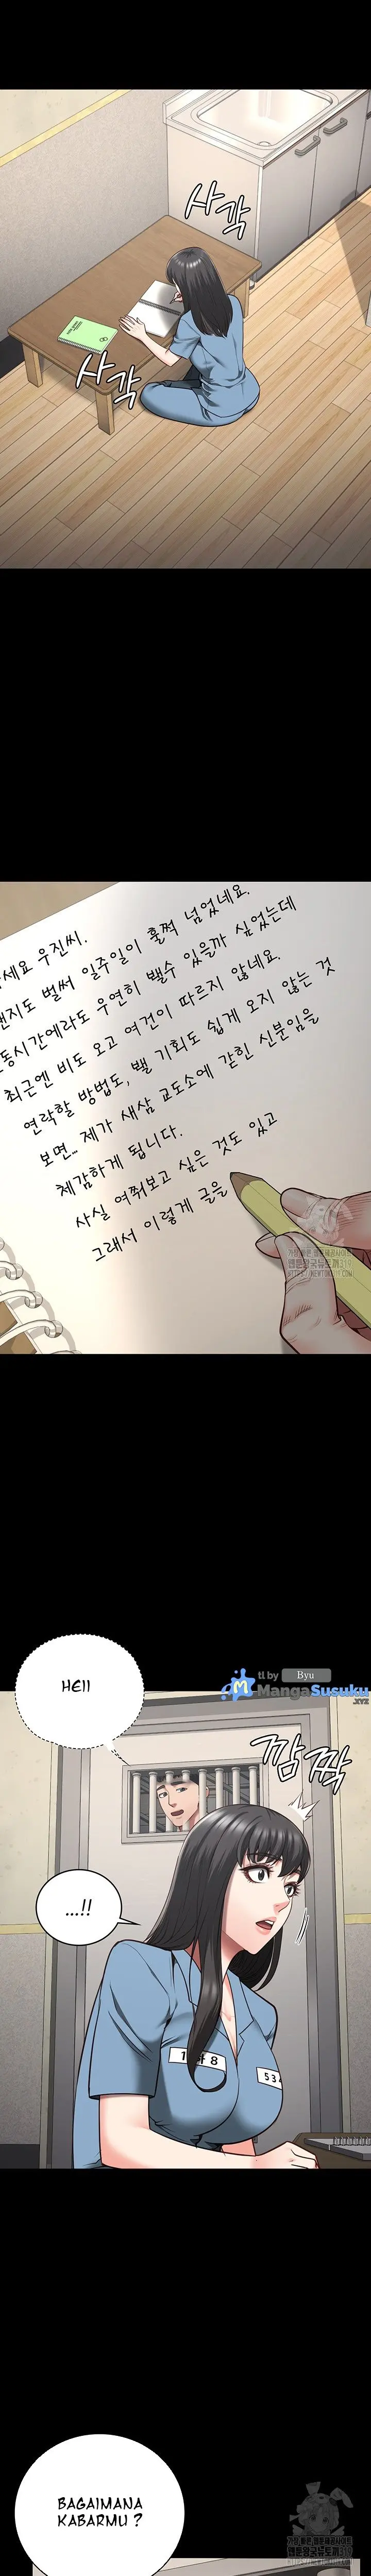 사각
사각
세요 우진씨.
지도 벌써 일주일이 훌쩍 넘었네요.
동시간에라도 우연히 뵐수 있을까 싶었는데
최근엔 비도 오고 여건이 따르지 않네요.
연락할 방법도, 뵐 기회도 쉽게 오지 않는 것
보면... 제가 새삼 교도소에 갇힌 신분임을
체감하게 됩니다.
사실 여쭤보고 싶은 것도 있고
그래서 이렇게 글을
tl by Byu
MangaSusuku
.XYZ
HEII
깜짝
...!!
8
534
BAGAIMANA
KABARMU ?